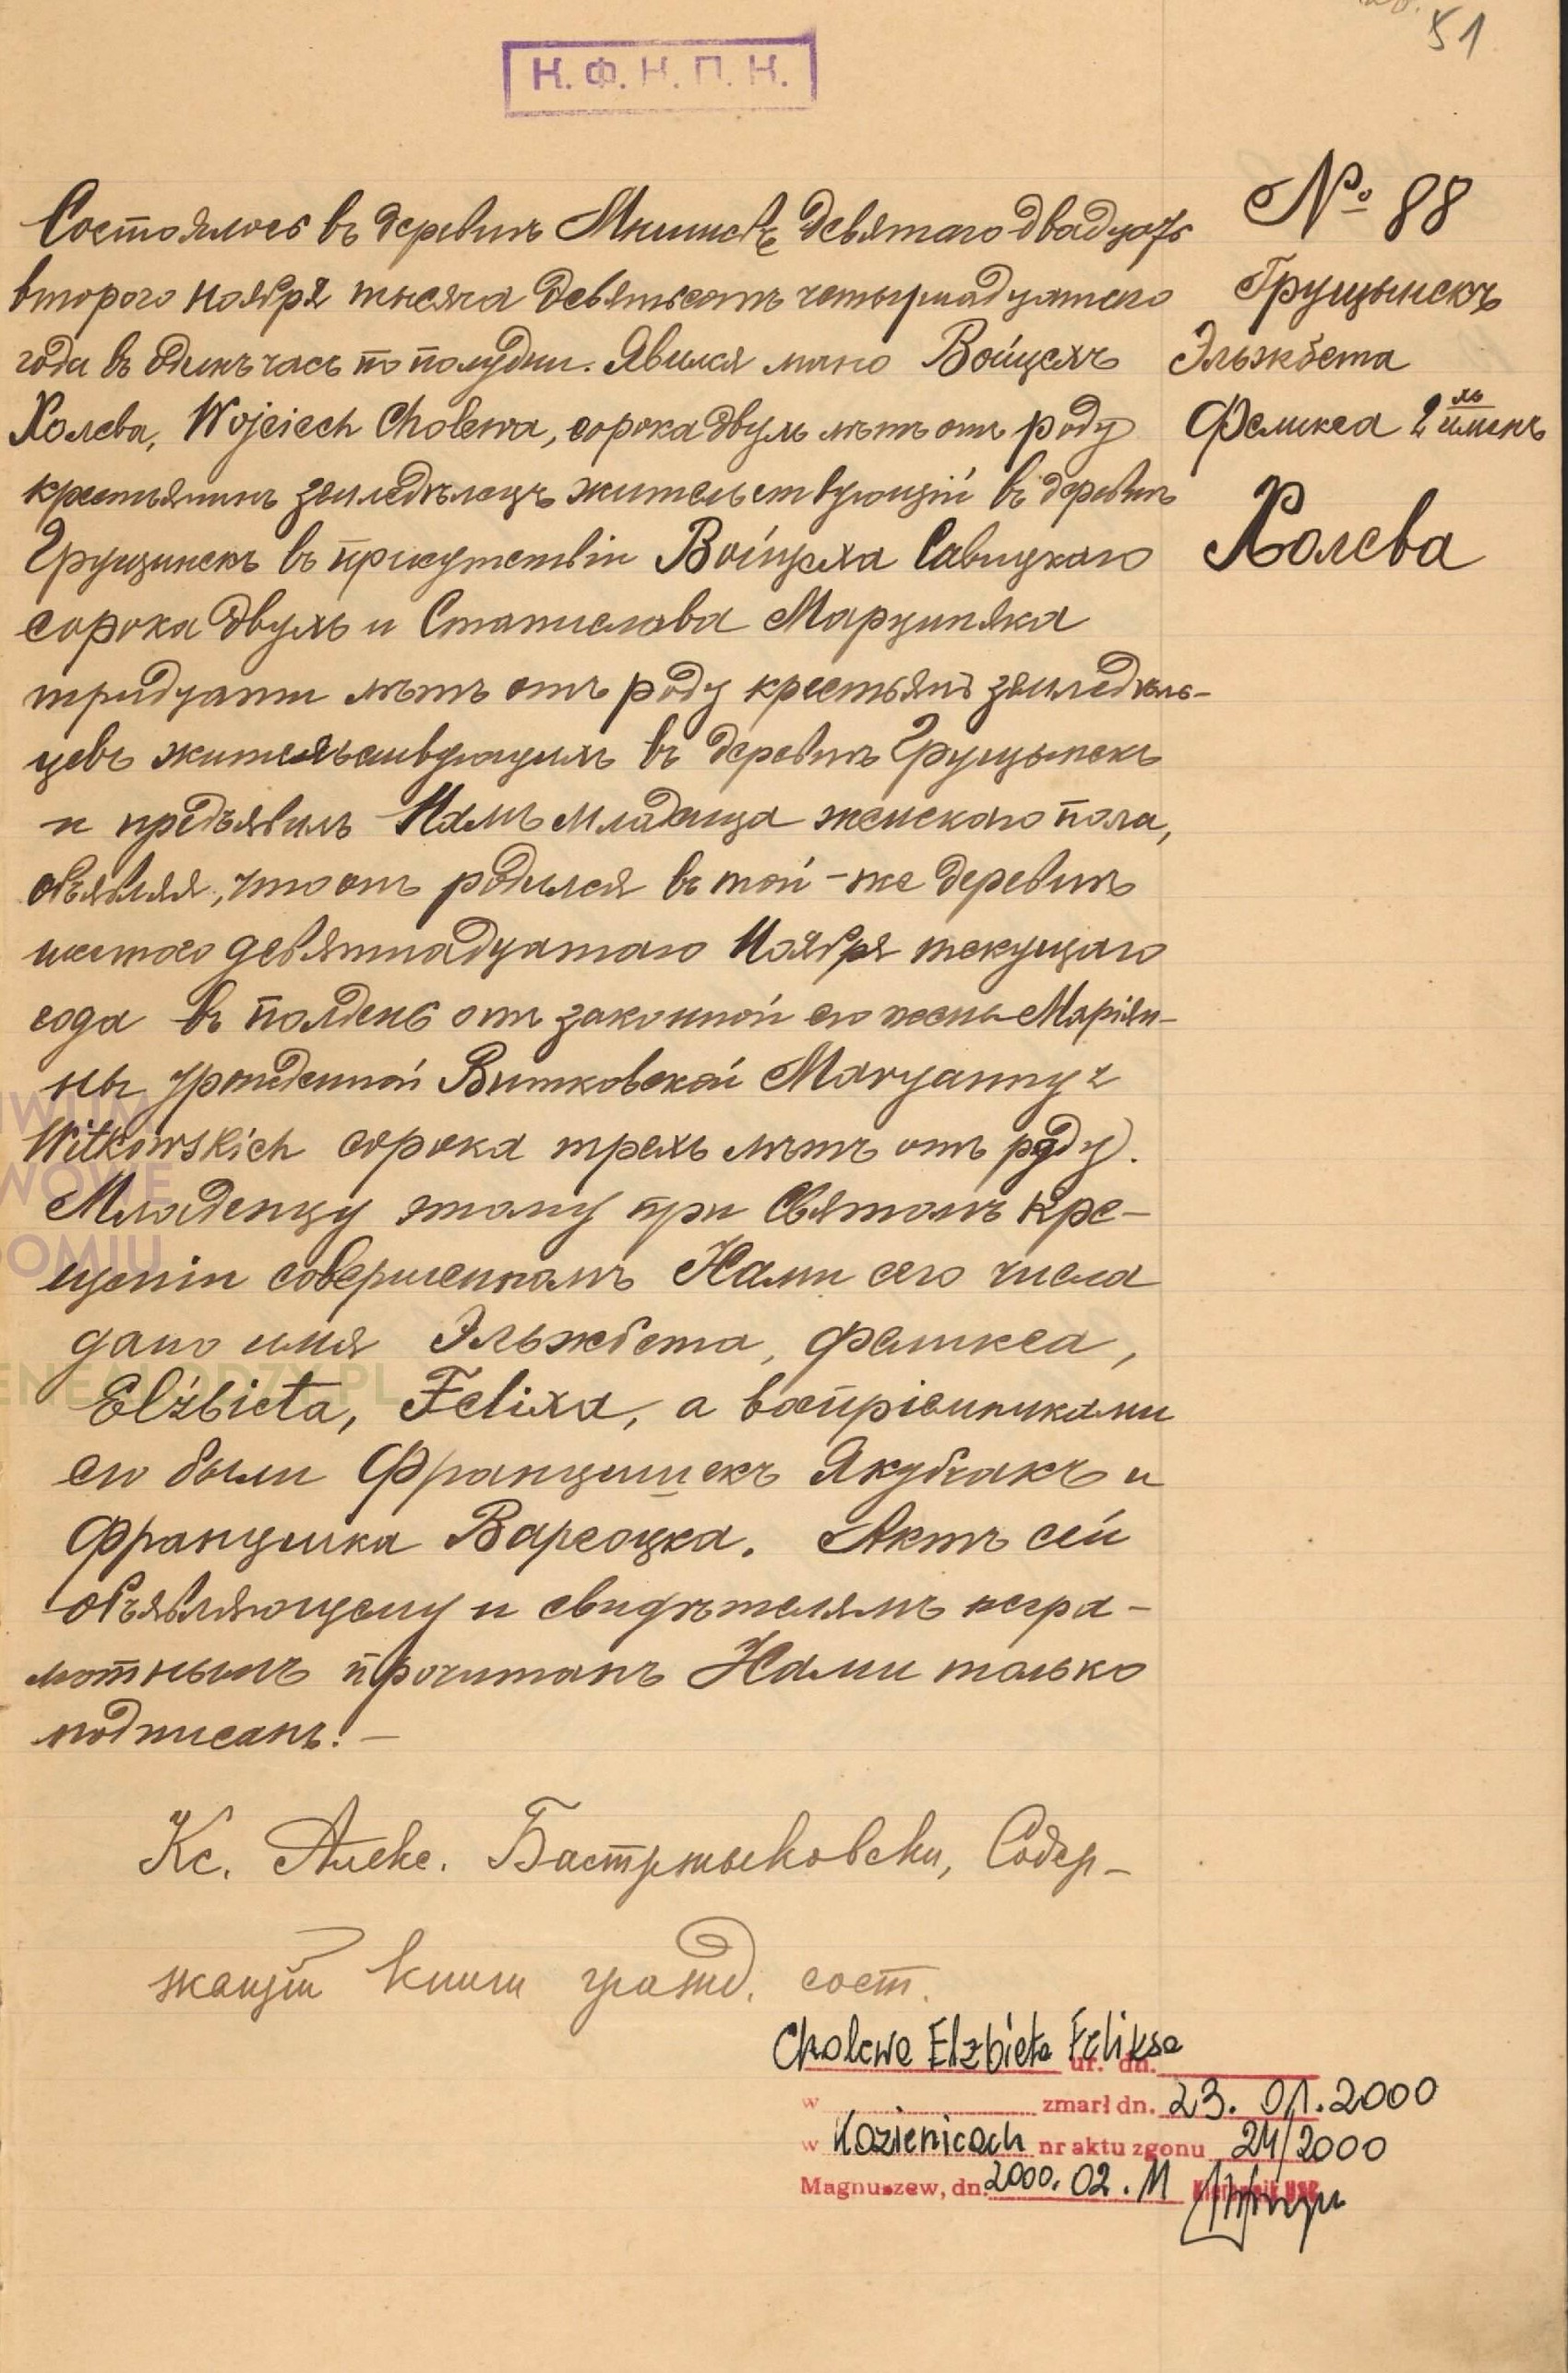 51
Н. Ф. Н. П. Н.
№ 88
Грущынскъ
Эльжбета
Феликса 2 хъ именъ
Холева
Состоялось въ деревнѣ Мнишевѣ девятаго двадцать
второго ноября тысяча девятьсотъ четырнадцатаго
года въ одинъ часъ по полудни. Явился лично Войцехъ
Холева, Wojciech Cholewa, сорока двухъ лѣтъ отъ роду
крестьянинъ земледѣлецъ жительствующій въ деревнѣ
Грущинекъ въ присутствіи Войцеха Савицкаго
сорока двухъ и Станислава Марциняка
тридцати лѣтъ отъ роду крестьянъ земледѣль-
цевъ жительствующихъ въ деревнѣ Грущынекъ
и предъявилъ Намъ младенца женскаго пола,
объявляя, что онъ родился въ той-же деревнѣ
шестого девятнадцатаго Ноября текущаго
года въ полдень отъ законной его жены Маріян-
ны урожденной Витковской Maryanny z
Witkowskich сорока трехъ лѣтъ отъ роду.
Младенцу этому при Святомъ Кре-
щеніи совершенномъ Нами сего числа
дано имя Эльжбета, Феликса,
Elżbieta, Felixa, а воспріемниками
его были Францишекъ Якубякъ и
Францишка Варсоцка. Актъ сей
объявляющему и свидѣтелямъ негра-
мотнымъ прочитанъ Нами только
подписанъ. —
Кс. Алекс. Бастржыковски, Содер-
жащій книги гражд. сост.
Cholewa Elżbieta Feliksa ur. dn.
w zmarł dn. 23. 01. 2000
w Kozienicach nr aktu zgonu 24/2000
Magnuszew, dn. 2000. 02. 11 Kierownik USC